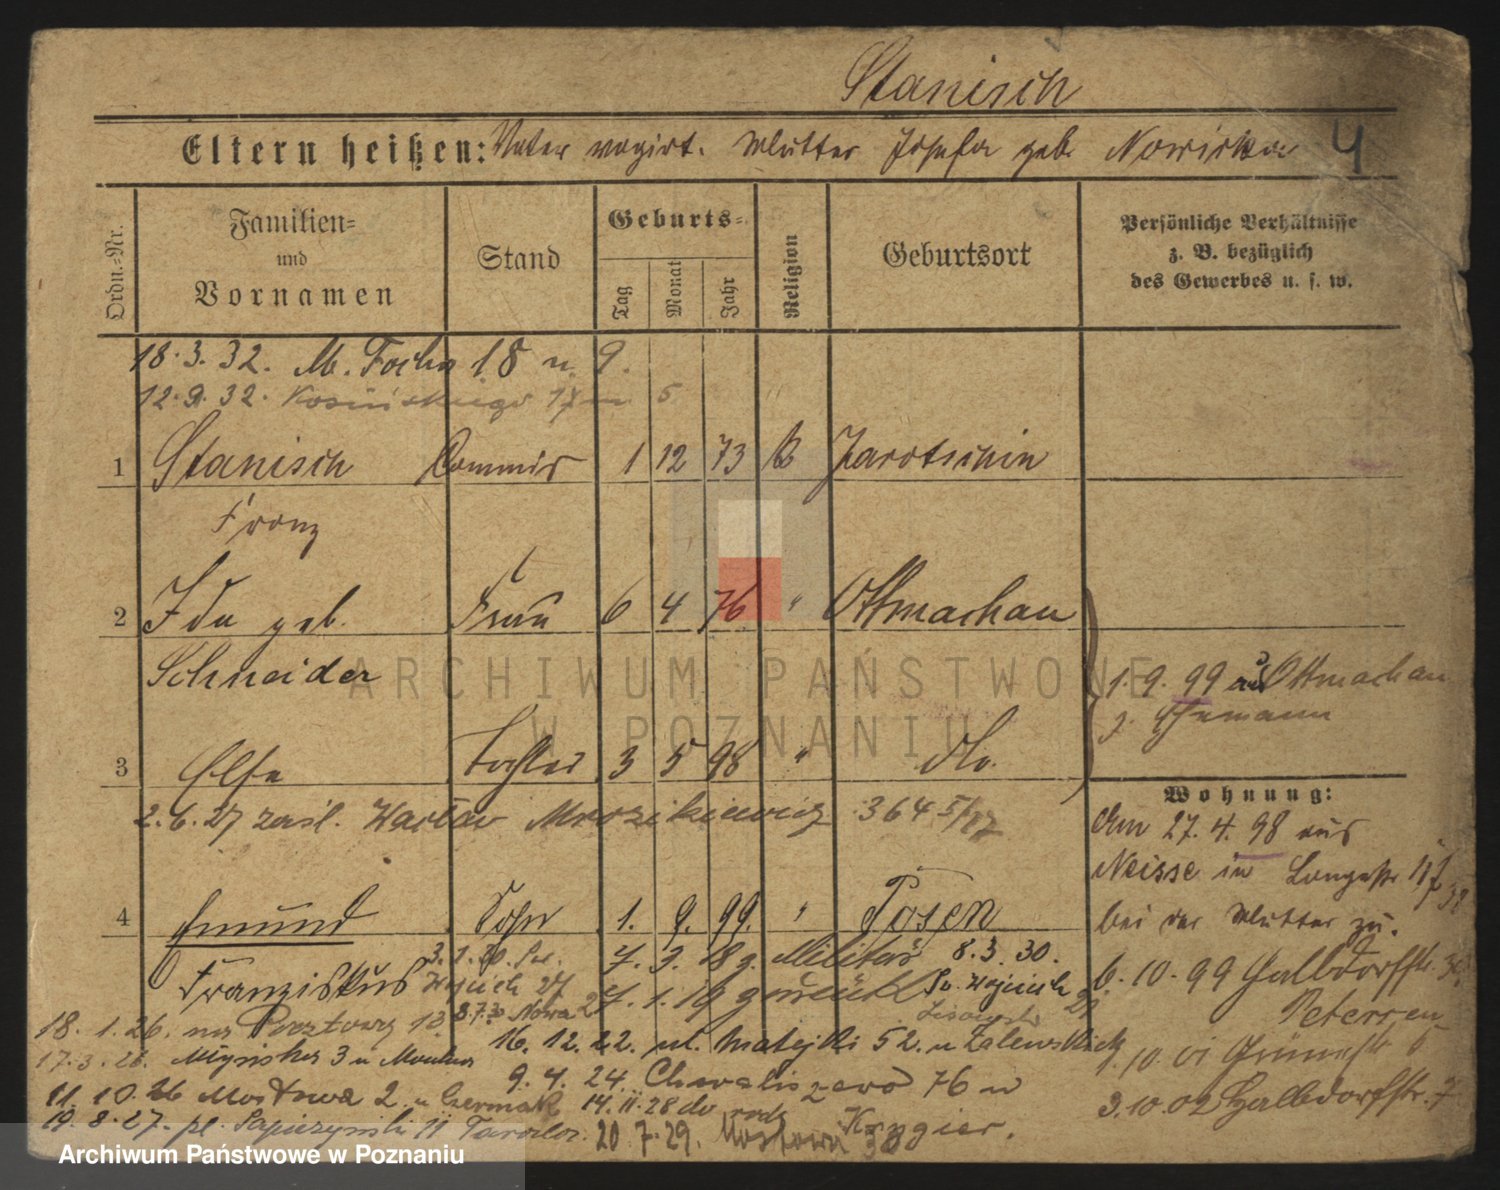 Stanisch
Eltern heißen: Vater vagirt. Mutter Josefa geb. Nowicka 4
Ordn.-Nr.
Familien-
und
Vornamen
Stand
Geburts-
Tag
Monat
Jahr
Religion
Geburtsort
Persönliche Verhältnisse
z. B. bezüglich
des Gewerbes u. s. w.
18.3.32. M. Focha 18 u. 9.
12.9.32. Kosińskiego 17 m 5
1 Stanisch Commis 1 12 73 k Jarotschin
Franz
2 Ida geb. Frau 6 4 76 " Ottmachau
Schneider
1.9.99 aus Ottmachau
z. Ehemann
3 Else Tochter 3 5 98 " do.
2.6.27 zaśl. Wacław Mrozikiewicz 364 5/27
Wohnung:
Am 27.4.98 aus
Neisse in Langestr 11
bei der Mutter zu.
4 Emund Sohn 1. 9. 99. " Posen
Franziskus
7. 3. 18 g. Militär 8.3.30.
Św. Wojciech 27
7. 1. 19 g zurück
Św. Wojciech 29
6.10.99 Halbdorfstr. 30
Petersen
8.7.30 Nowa 2
18. 1. 26. na Pocztową 18
16. 12. 22. ul. Matejki 52. u Zalewskich
17.3.26. Młyńska 3 u
9. 4. 24. Chwaliszewo 76 u
Krygier.
11. 10. 26 Mostowa 2 u Czermak
14.11.28 do
3.10.02 Halbdorfstr. 7
19.8.27. pl. Sapieżyński 11
20.7.29. Mostowa 30
ARCHIWUM PAŃSTWOWE
W POZNANIU
Archiwum Państwowe w Poznaniu